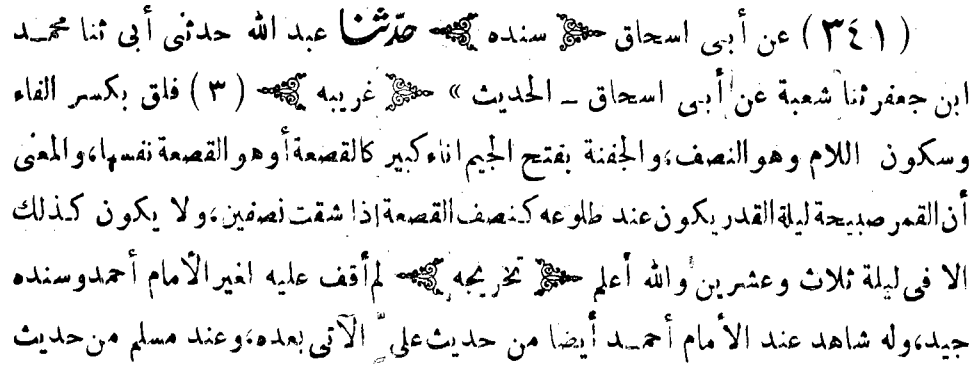 ( ٣٤١ ) عن أبى اسحاق ﴿ سنده ﴾ حدّثنا عبد الله حدثنى أبى ثنا محمد
ابن جعفر ثنا شعبة عن أبى اسحاق ــ الحديث » ﴿ غريبه ﴾ ( ٣ ) فلق بكسر الفاء
وسكون اللام وهو النصف، والجفنة بفتح الجيم اناء كبير كالقصعة أو هو القصعة نفسها، والمعنى
أن القمر صبيحة ليلة القدر يكون عند طلوعه كنصف القصعة اذا شقت نصفين، ولا يكون كذلك
الا فى ليلة ثلاث وعشرين والله أعلم ﴿ تخريجه ﴾ لم أقف عليه لغير الأمام أحمد وسنده
جيد، وله شاهد عند الأمام أحمد أيضا من حديث علىّ الآتى بعده، وعند مسلم من حديث